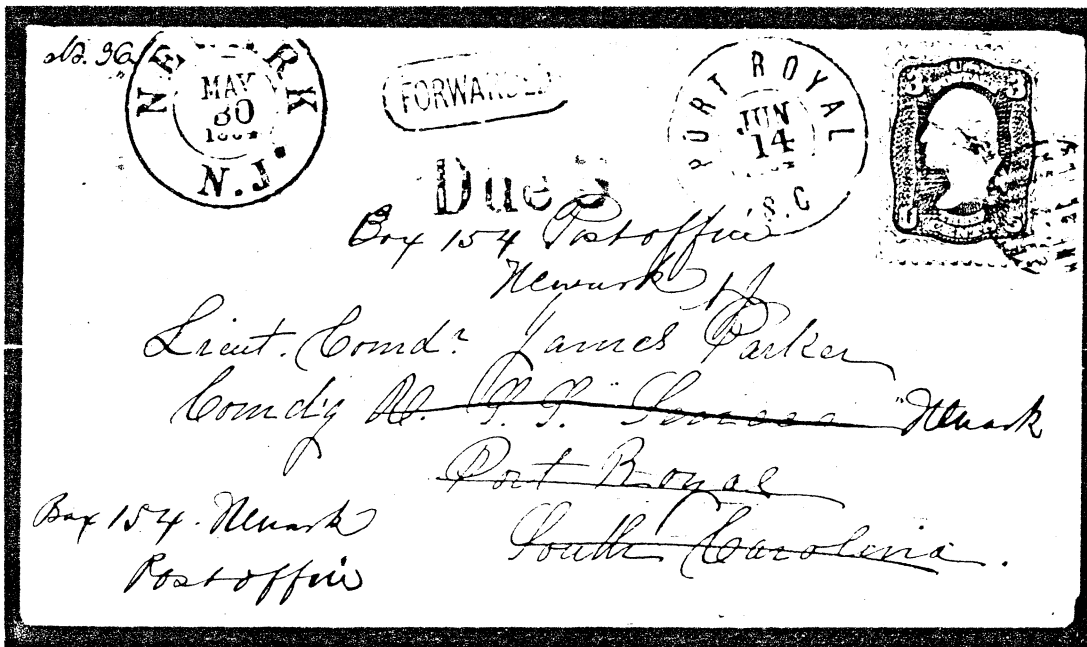 No. 36
NEWARK
MAY
30
N.J.
FORWARDED
PORT ROYAL
JUN
14
S.C
Due 3
Box 154 Postoffice
Newark NJ
Lieut. Comdr. James Parker
Comd'g U. S. S. "Seneca" Newark
Port Royal
South Carolina.
Box 154. Newark
Postoffice